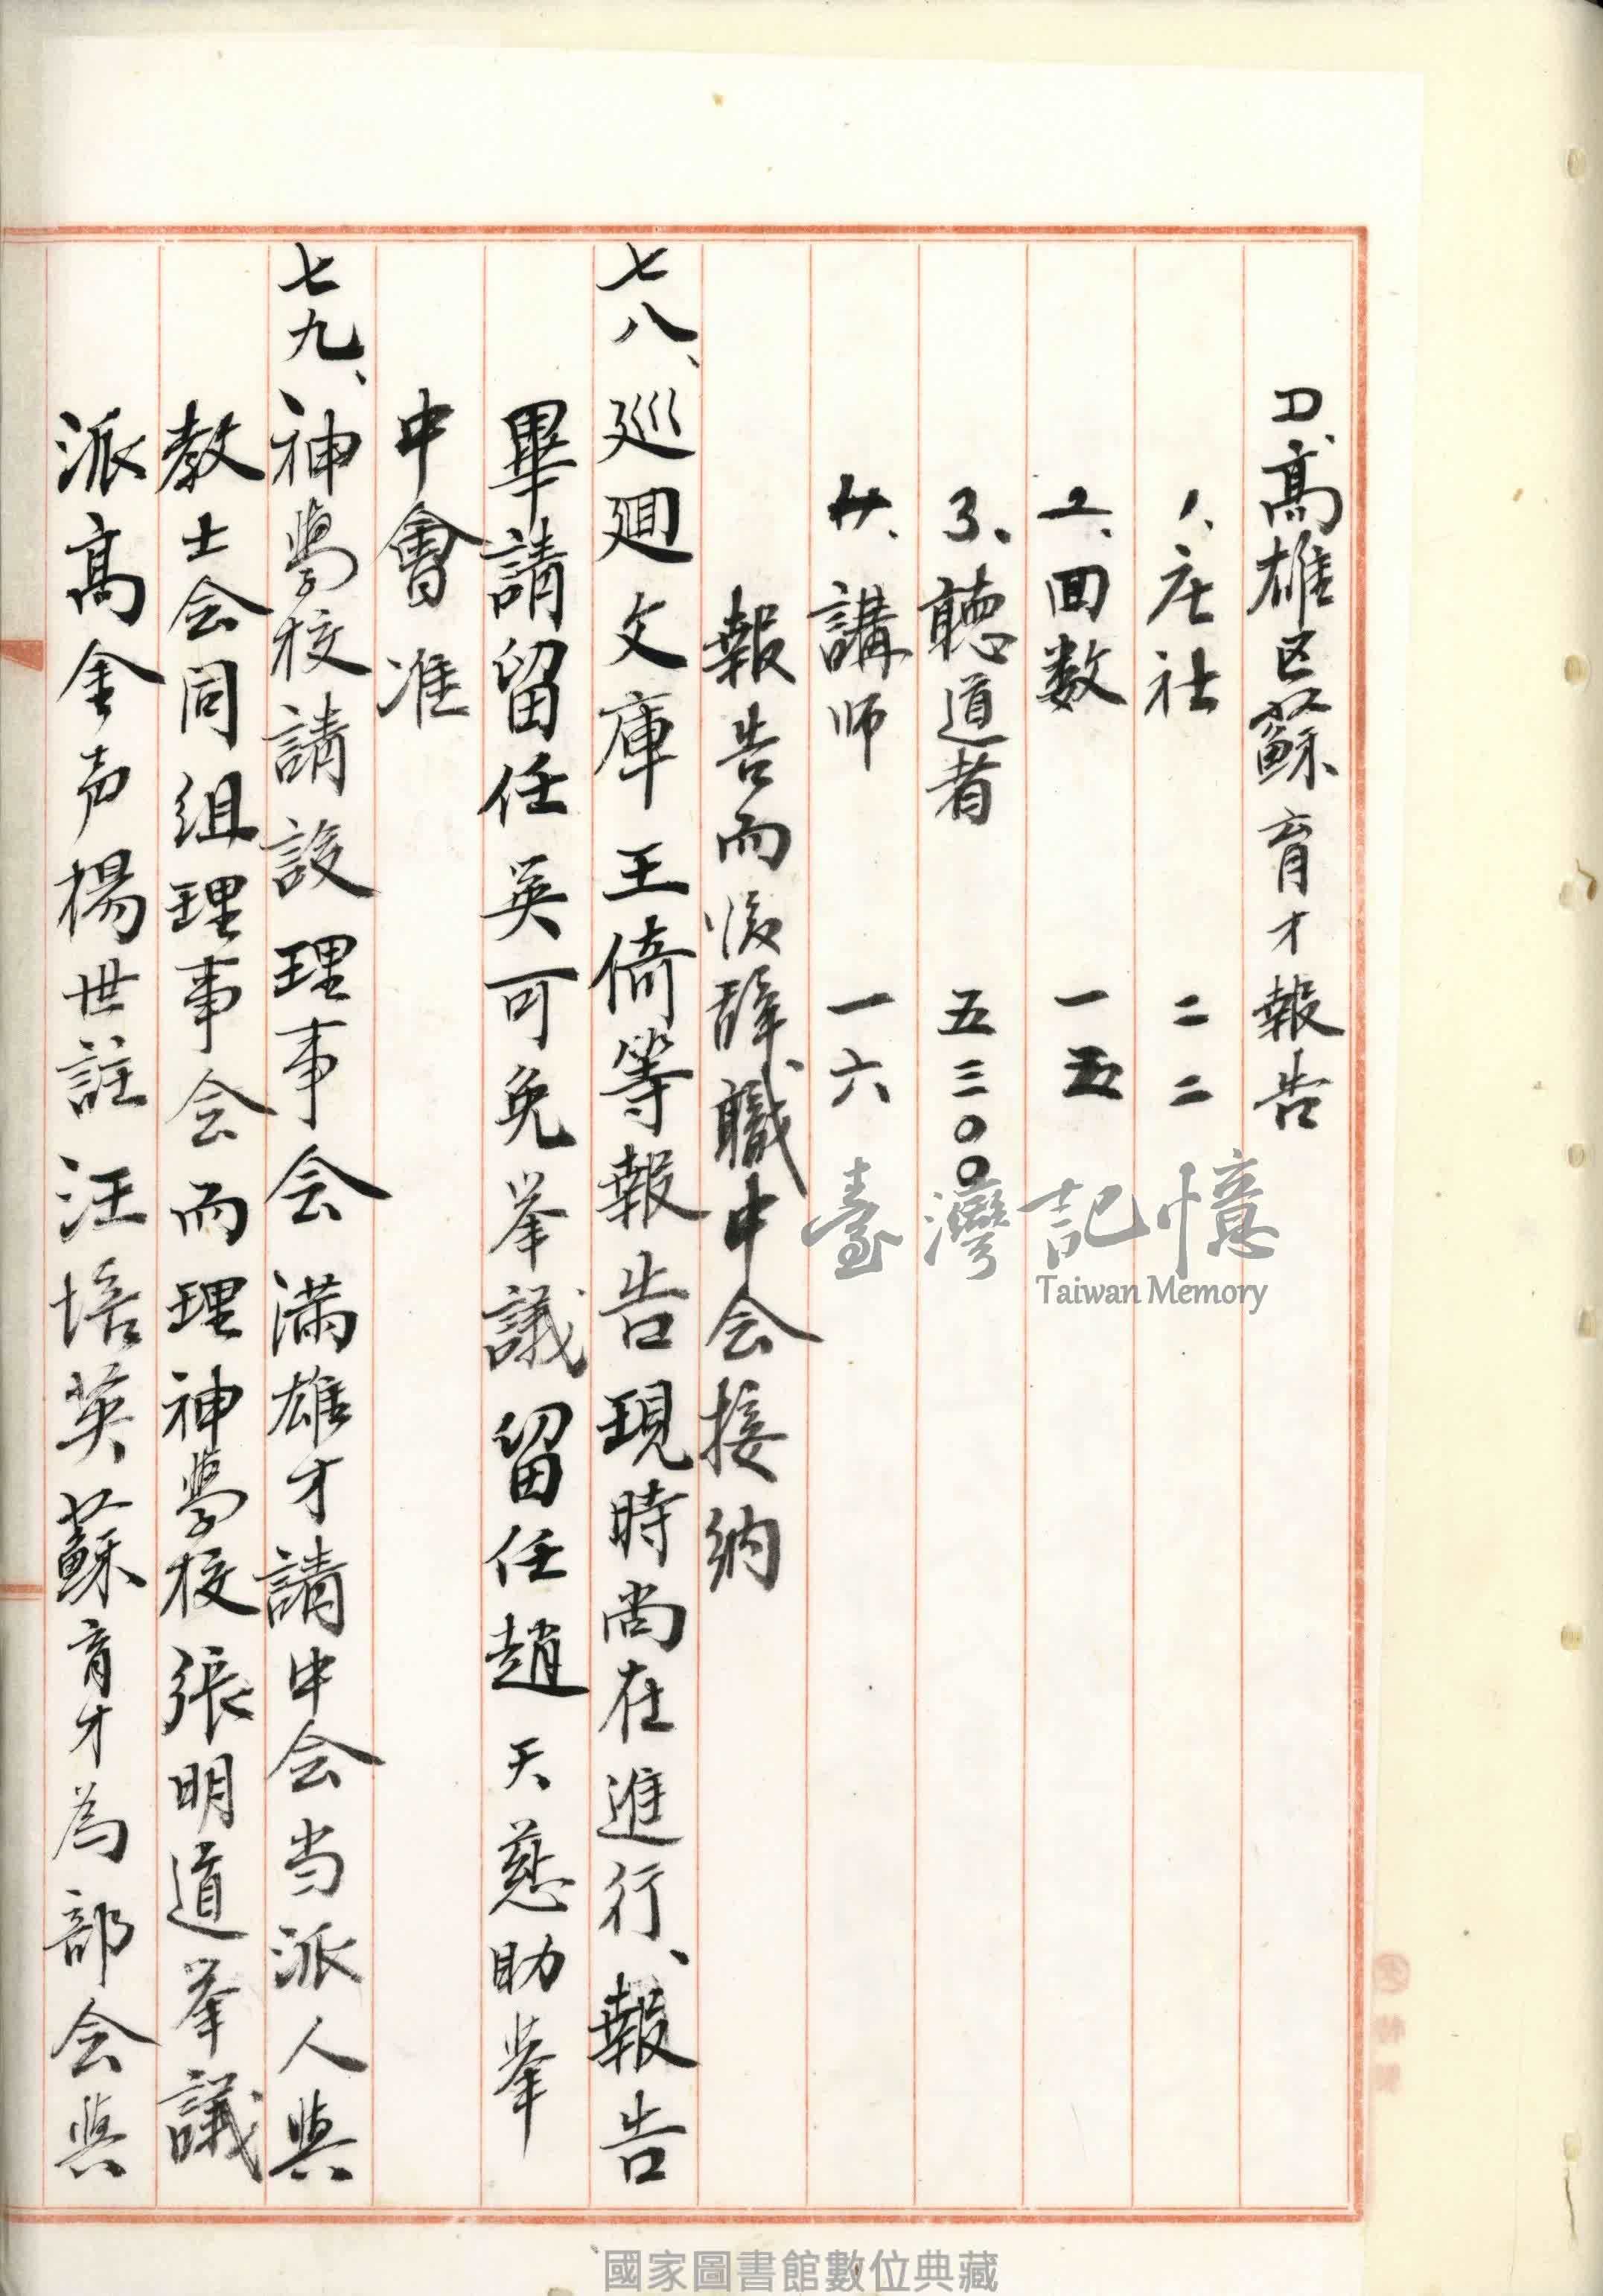 D、高雄区蘇育才報告
1、庄社　二二
2、回数　一五
3、聽道者　五三〇〇
4、講师　一六
報告而後辞職中会接納
七八、巡廻文庫王倚等報告現時尚在進行、報告
畢請留任吳可免举議留任趙天慈助举
中會准
七九、神學校請設理事会滿雄才請中会当派人與
教士会同组理事会而理神學校張明道举議
派高金声楊世註汪培英蘇育才為部会與
臺灣記憶
Taiwan Memory
國家圖書館數位典藏